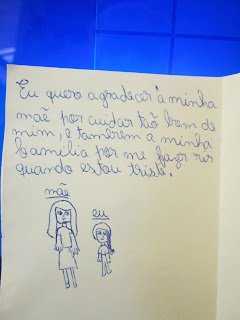 Eu quero agradecer à minha
mãe por cuidar tão bem de
mim, e tamérem a minha
família por me fazer rir
quando estou triste.
mãe
eu